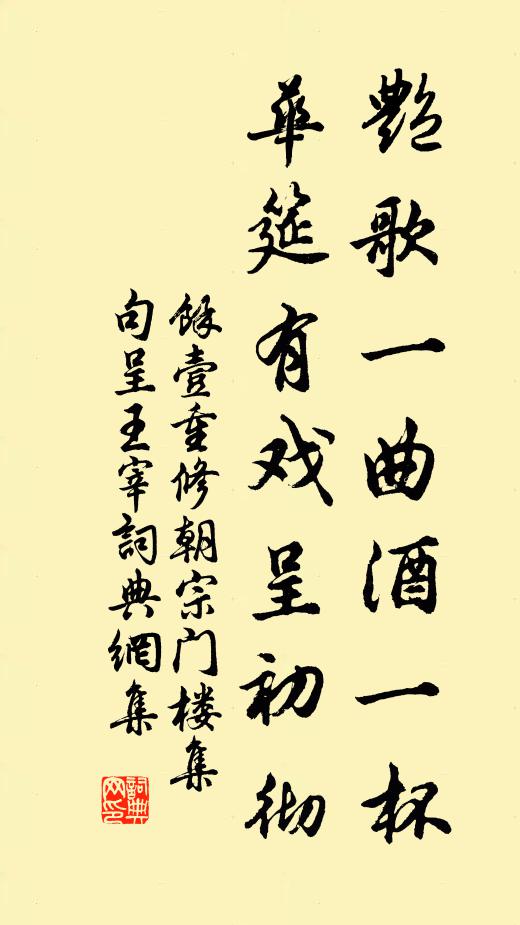 艷歌一曲酒一杯
華筵有戏呈初彻
餘壹重修朝宗门楼集
句呈王宰詞典網集
詞典网印